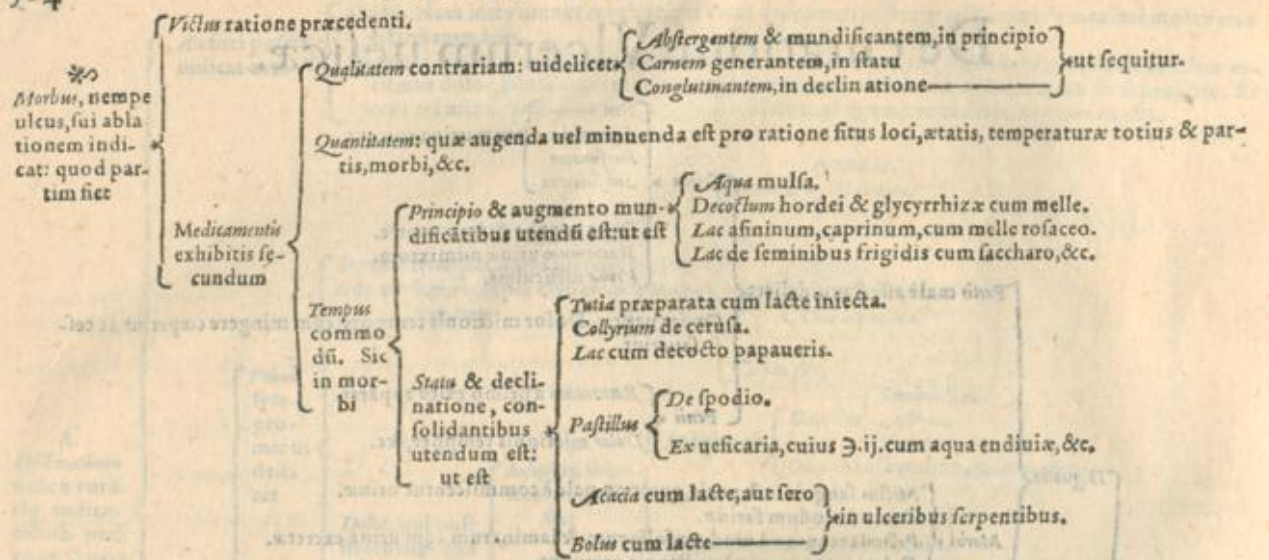 Victus ratione præcedenti.
Morbus, nempe
ulcus, sui abla
tionem indi-
cat: quod par-
tim fiet
Medicamentis
exhibitis se-
cundum
Qualitatem contrariam: uidelicet
Abstergentem & mundificantem, in principio
Carnem generantem, in statu
Conglutinantem, in declin atione
ut sequitur.
Quantitatem: quæ augenda uel minuenda est pro ratione situs loci, ætatis, temperaturæ totius & par-
tis, morbi, &c.
Tempus
commo
dū. Sic
in mor-
bi
Principio & augmento mun-
dificātibus utendū est: ut est
Aqua mulsa.
Decoctum hordei & glycyrrhizæ cum melle.
Lac asininum, caprinum, cum melle rosaceo.
Lac de seminibus frigidis cum saccharo, &c.
Statu & decli-
natione, con-
solidantibus
utendum est:
ut est
Tutia præparata cum lacte iniecta.
Collyrium de cerusa.
Lac cum decocto papaueris.
Pastillus
De spodio.
Ex uesicaria, cuius ℈.ij. cum aqua endiuiæ, &c.
Acacia cum lacte, aut sero
Bolus cum lacte
in ulceribus serpentibus.